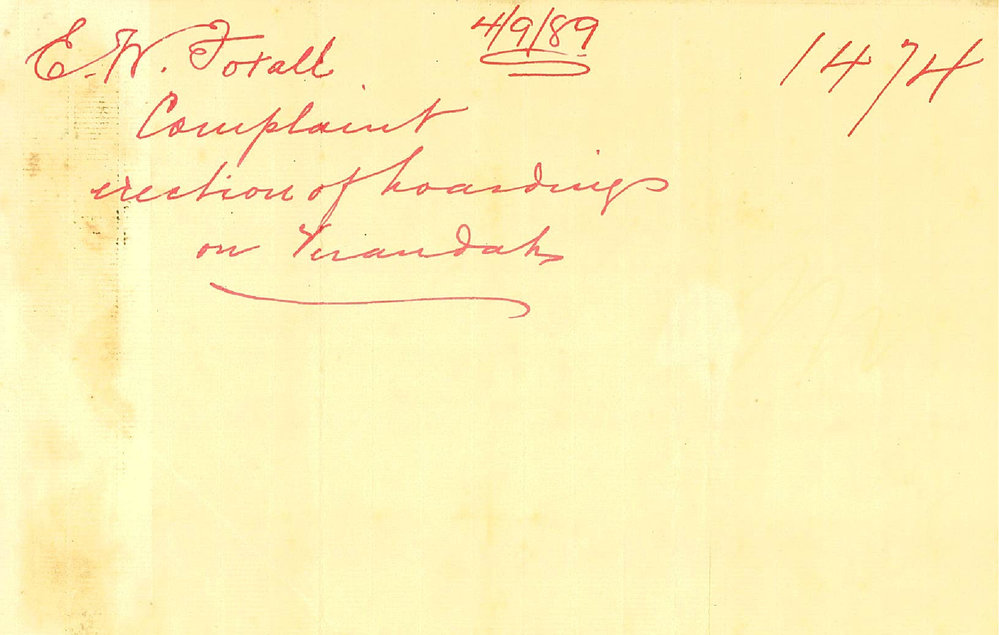 4/9/89
E. W. Foxall 1474
Complaint
erection of hoardings
on Verandah